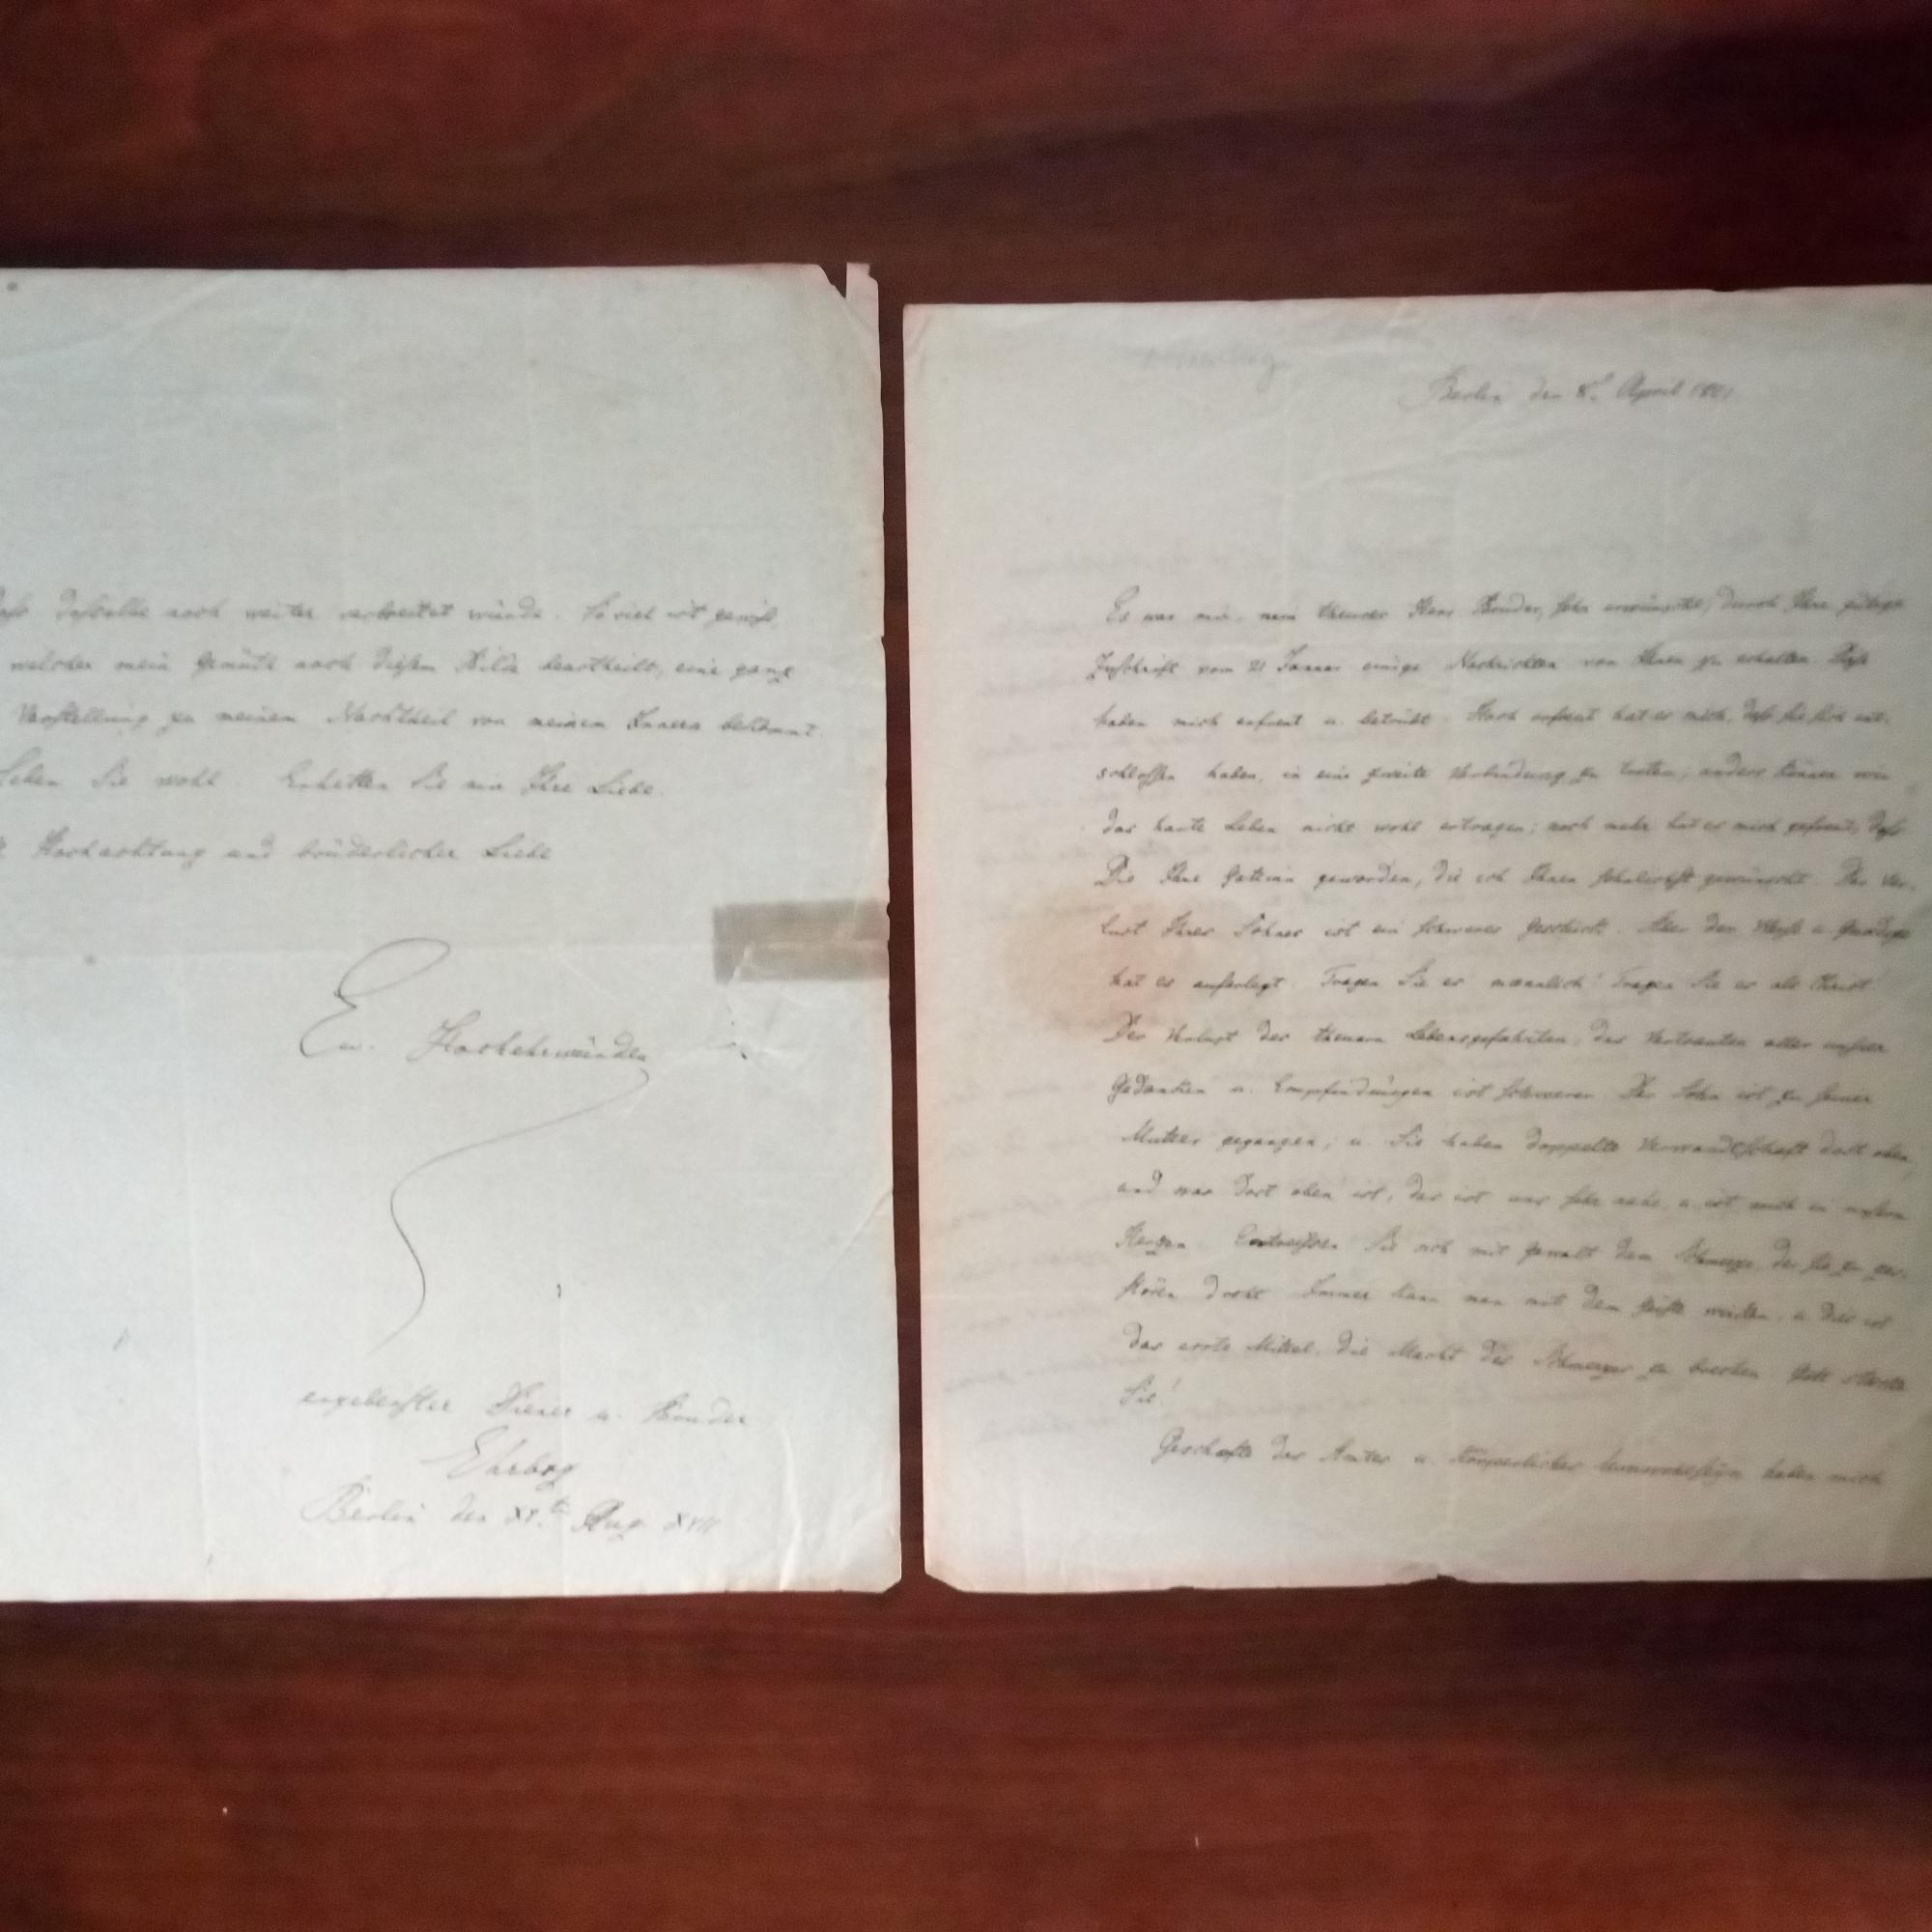 daß dasselbe noch weiter verbreitet würde. So viel ist gewiß,
welcher mein Gemüth nach diesem Bilde beurtheilt, eine ganz
Vorstellung zu meinem Nachtheil von meinem Innern bekömmt.
Leben Sie wohl. Erhalten Sie mir Ihre Liebe.
Hochachtung und brüderlicher Liebe
Ew. Hochehrwürden
ergebenster Diener u. Bruder
Berlin den XI.ten Aug.
Berlin den 8.t April
Es war mir, mein theurer Herr Bruder, sehr erwünscht, durch Ihre gütige
Zuschrift vom 21 Januar einige Nachrichten von Ihnen zu erhalten. Diese
haben mich erfreut u. betrübt. Hoch erfreut hat es mich, daß Sie sich ent-
schlossen haben, in eine zweite Verbindung zu treten; anders können wir
das harte Leben nicht wohl ertragen; noch mehr hat es mich gefreut, daß
Die Ihre Gattinn geworden, die ich Ihnen sehnlichst gewünscht. Der Ver-
lust Ihres Sohnes ist ein schweres Geschick. Aber der Weise u. Gnädige
hat es auferlegt. Tragen Sie es männlich! Tragen Sie es als Christ
Der Verlust der theuern Lebensgefährten, der Vertrauten aller unsrer
Gedanken u. Empfindungen ist schwerer. Der Sohn ist zu seiner
Mutter gegangen; u. Sie haben doppelte Verwandtschaft dort oben,
und was dort oben ist, das ist uns sehr nahe, u. ist auch in unserm
Herzen. Entreissen Sie sich mit Gewalt dem Schmerze, der Sie zu zer-
stören droht. Immer kann man mit dem Geiste wirken, u. dies ist
das erste Mittel, die Macht des Schmerzes zu brechen. Gott stärke
Sie!
Geschäfte des Amtes u. körperliches Unwohlseyn haben mich